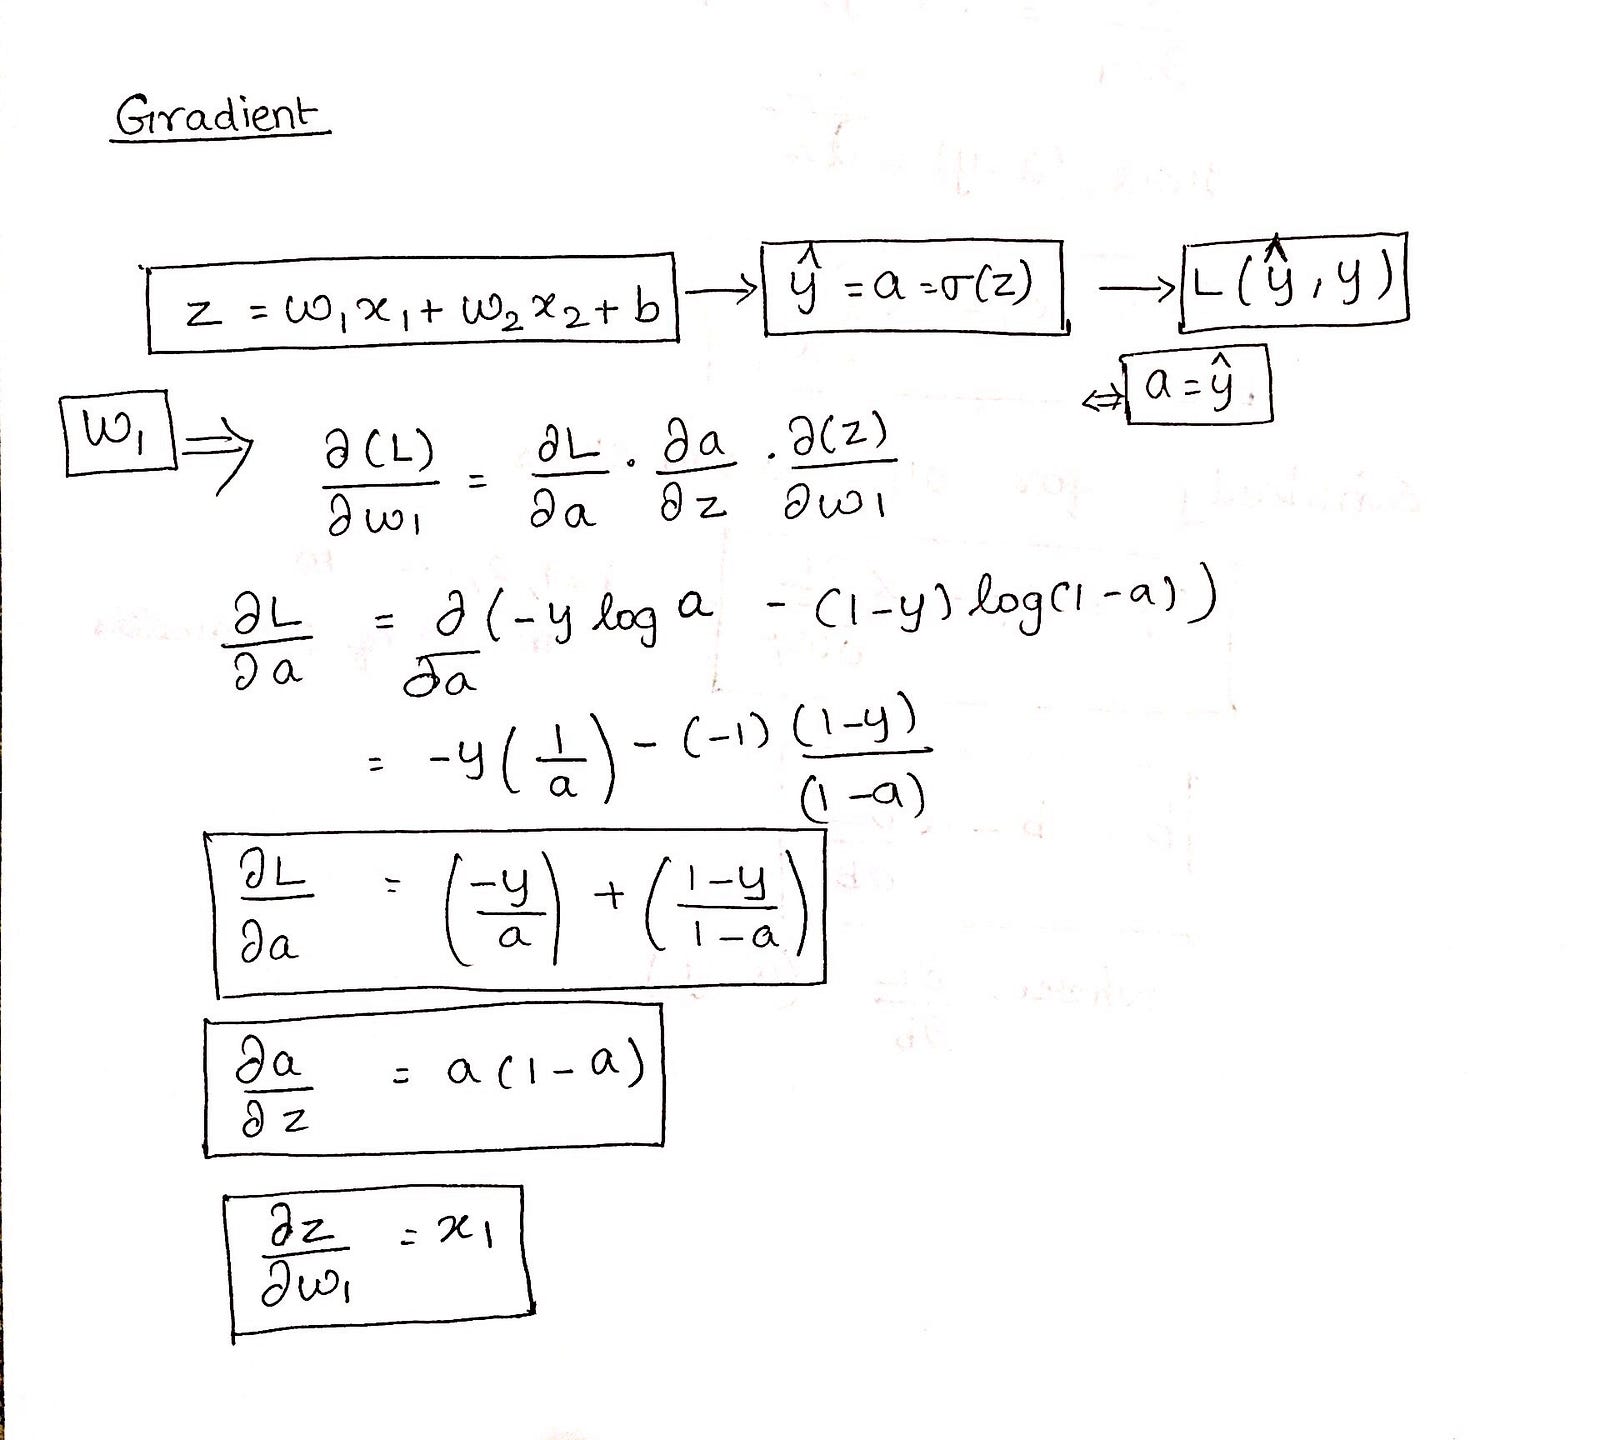 Gradient
z = w₁x₁ + w₂x₂ + b → ŷ = a = σ(z) → L(ŷ, y)
⇔ a = ŷ.
w₁ ⇒ ∂(L)/∂w₁ = ∂L/∂a · ∂a/∂z · ∂(z)/∂w₁
∂L/∂a = ∂/∂a (-y log a - (1-y) log(1-a))
= -y(1/a) - (-1) (1-y)/(1-a)
∂L/∂a = (-y/a) + (1-y/1-a)
∂a/∂z = a(1-a)
∂z/∂w₁ = x₁